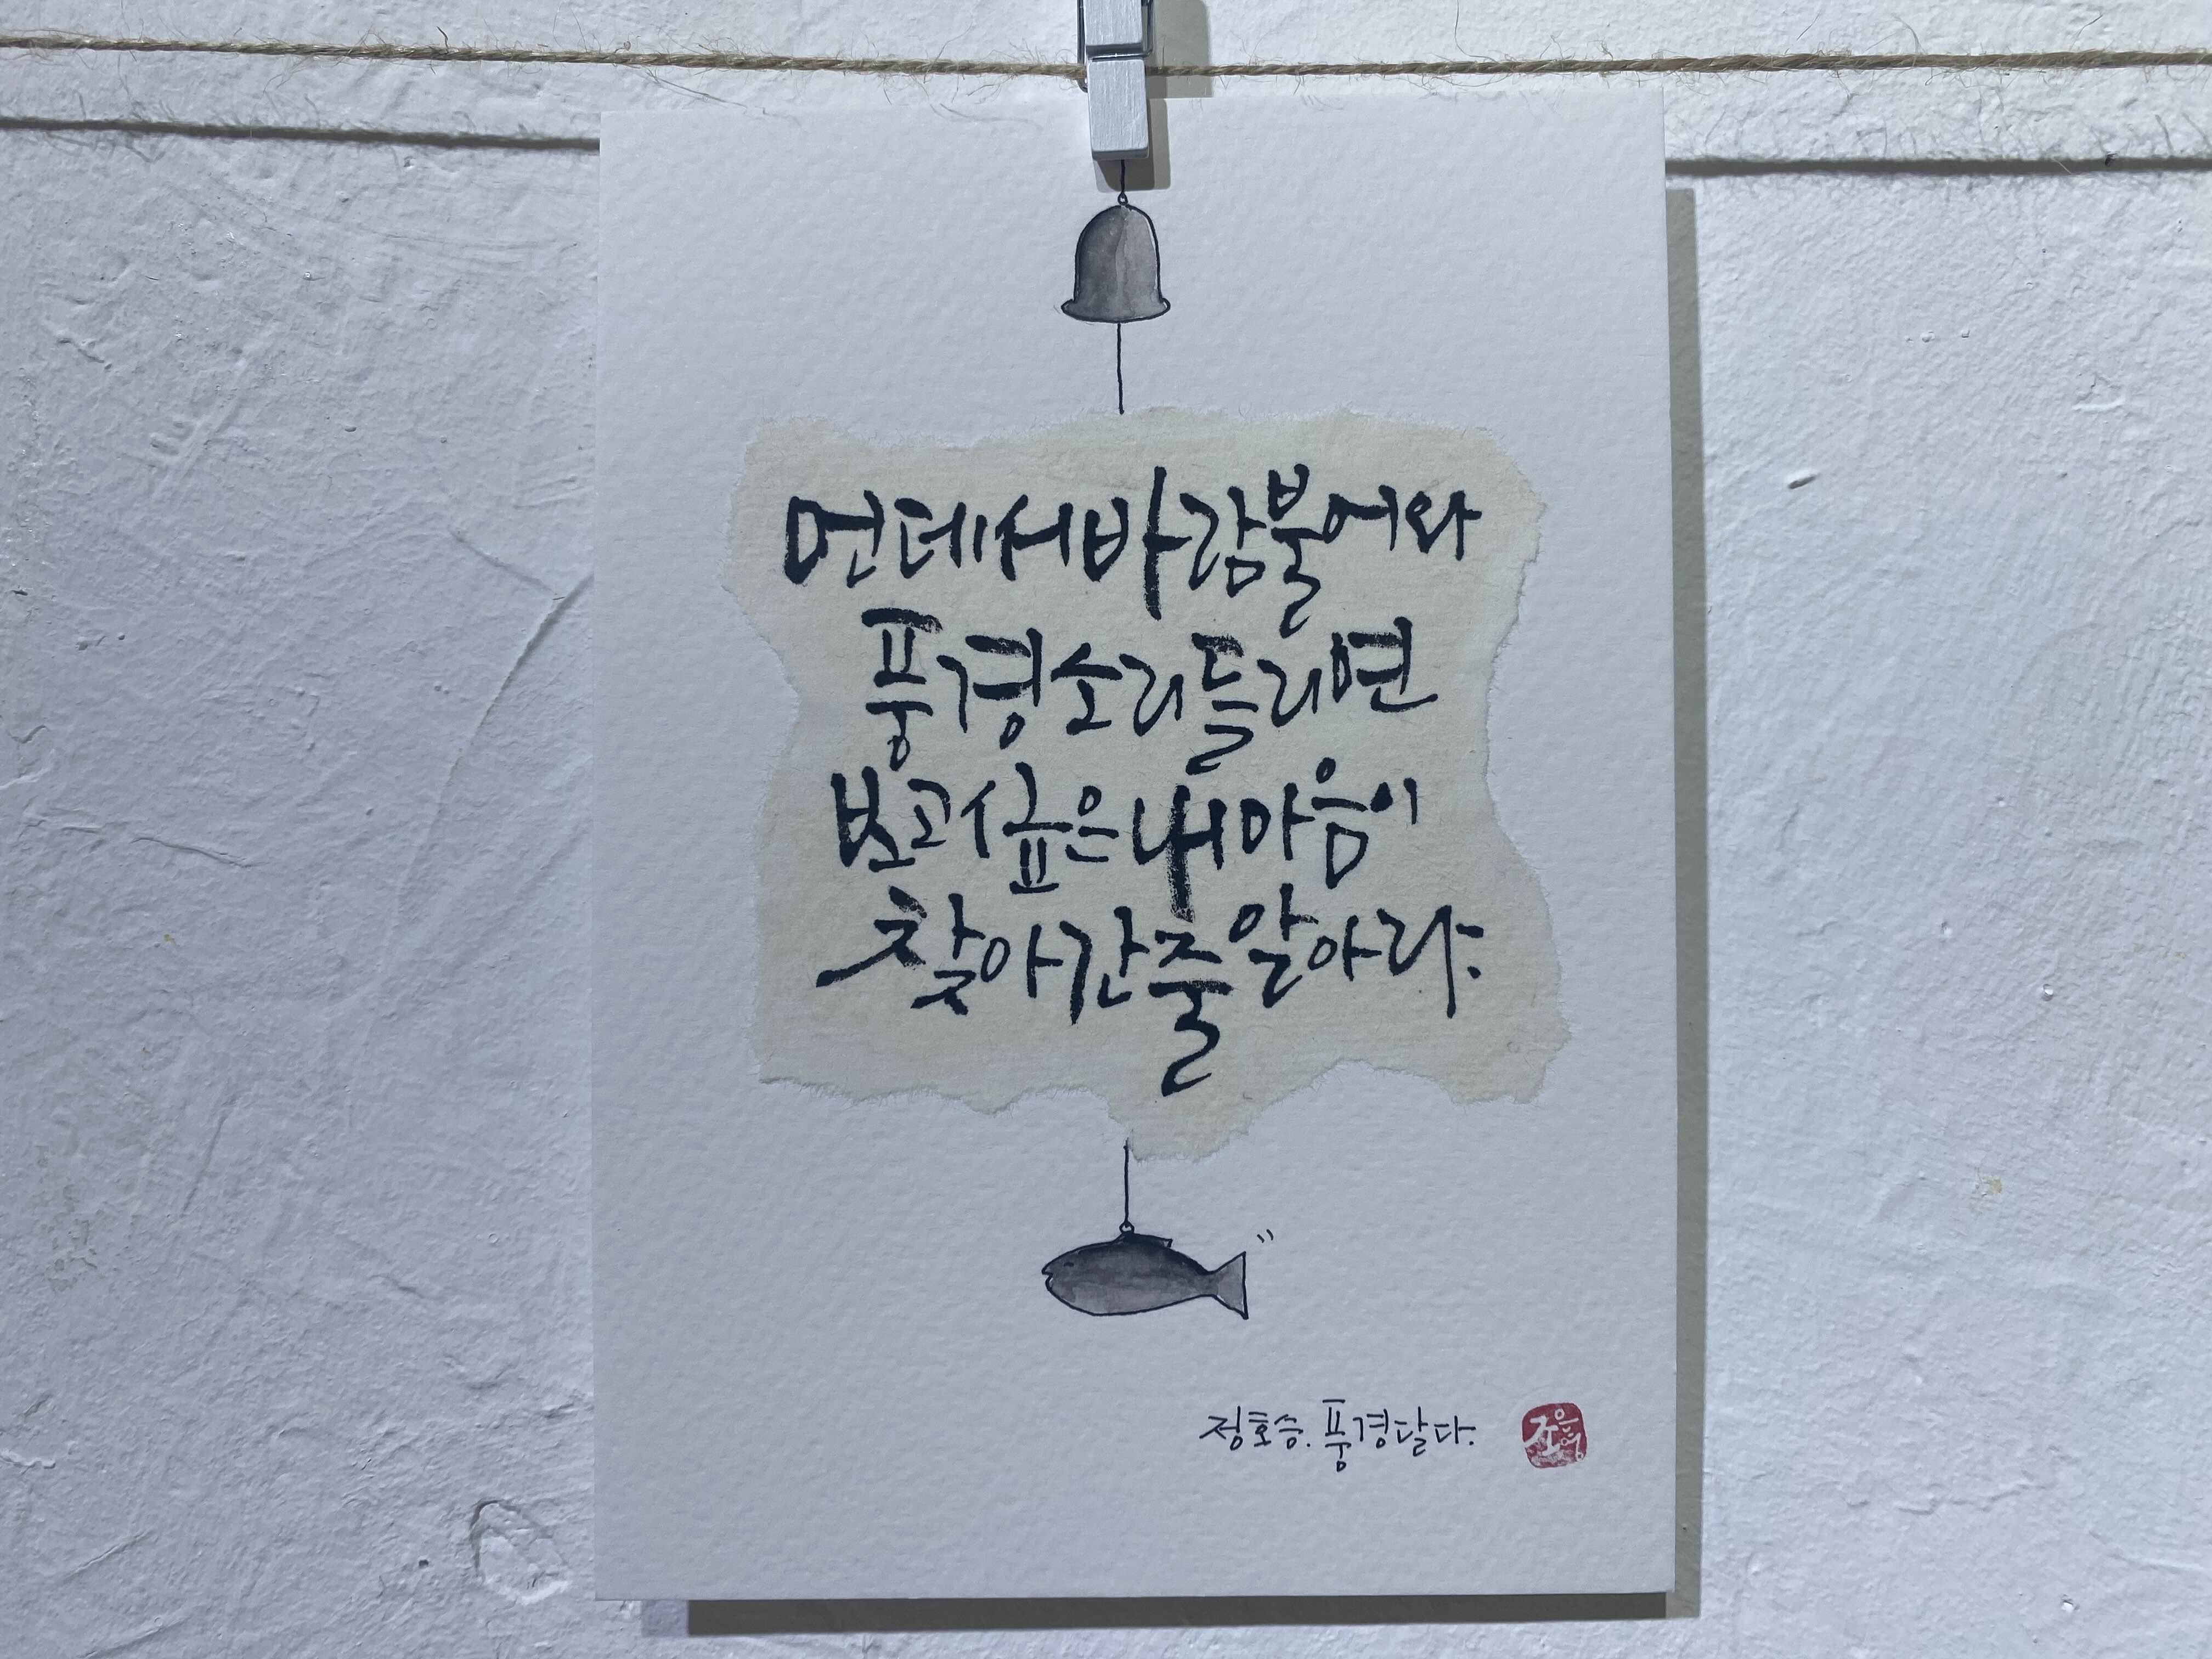 먼데서바람불어와
풍경소리들리면
보고싶은내마음이
찾아간줄알아라.
정호승. 풍경달다.